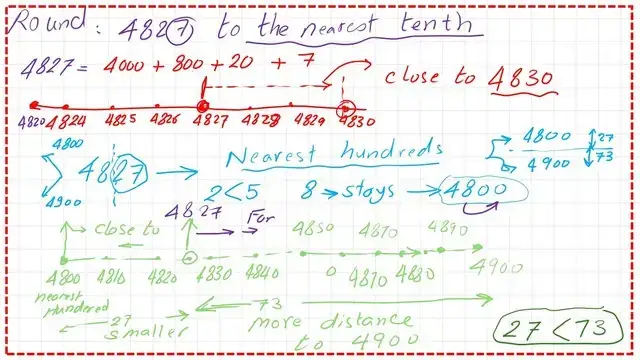 Round: 4827 to the nearest tenth
4827 = 4000 + 800 + 20 + 7
close to 4830
4820 4824 4825 4826 4827 4828 4829 4830
4800
4827
4900
Nearest hundreds
2<5 8 → stays → 4800
4800 27
4900 73
4827 Far
close to
4850 4870 4890
4800 4810 4820 4830 4840 0 4870 4880 4900
nearest hundered
27 73
smaller
more distance
to 4900
27 < 73